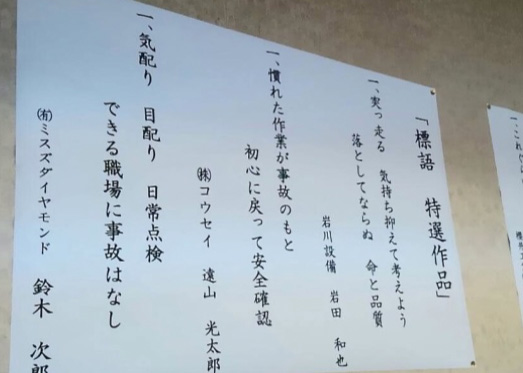 「標語 特選作品」
一、突っ走る 気持ち抑えて考えよう
落としてならぬ 命と品質
岩川設備 岩田 和也
一、慣れた作業が事故のもと
初心に戻って安全確認
㈱コウセイ 遠山 光太郎
一、気配り 目配り 日常点検
できる職場に事故はなし
㈲ミスズダイヤモンド 鈴木 次郎
一、これ